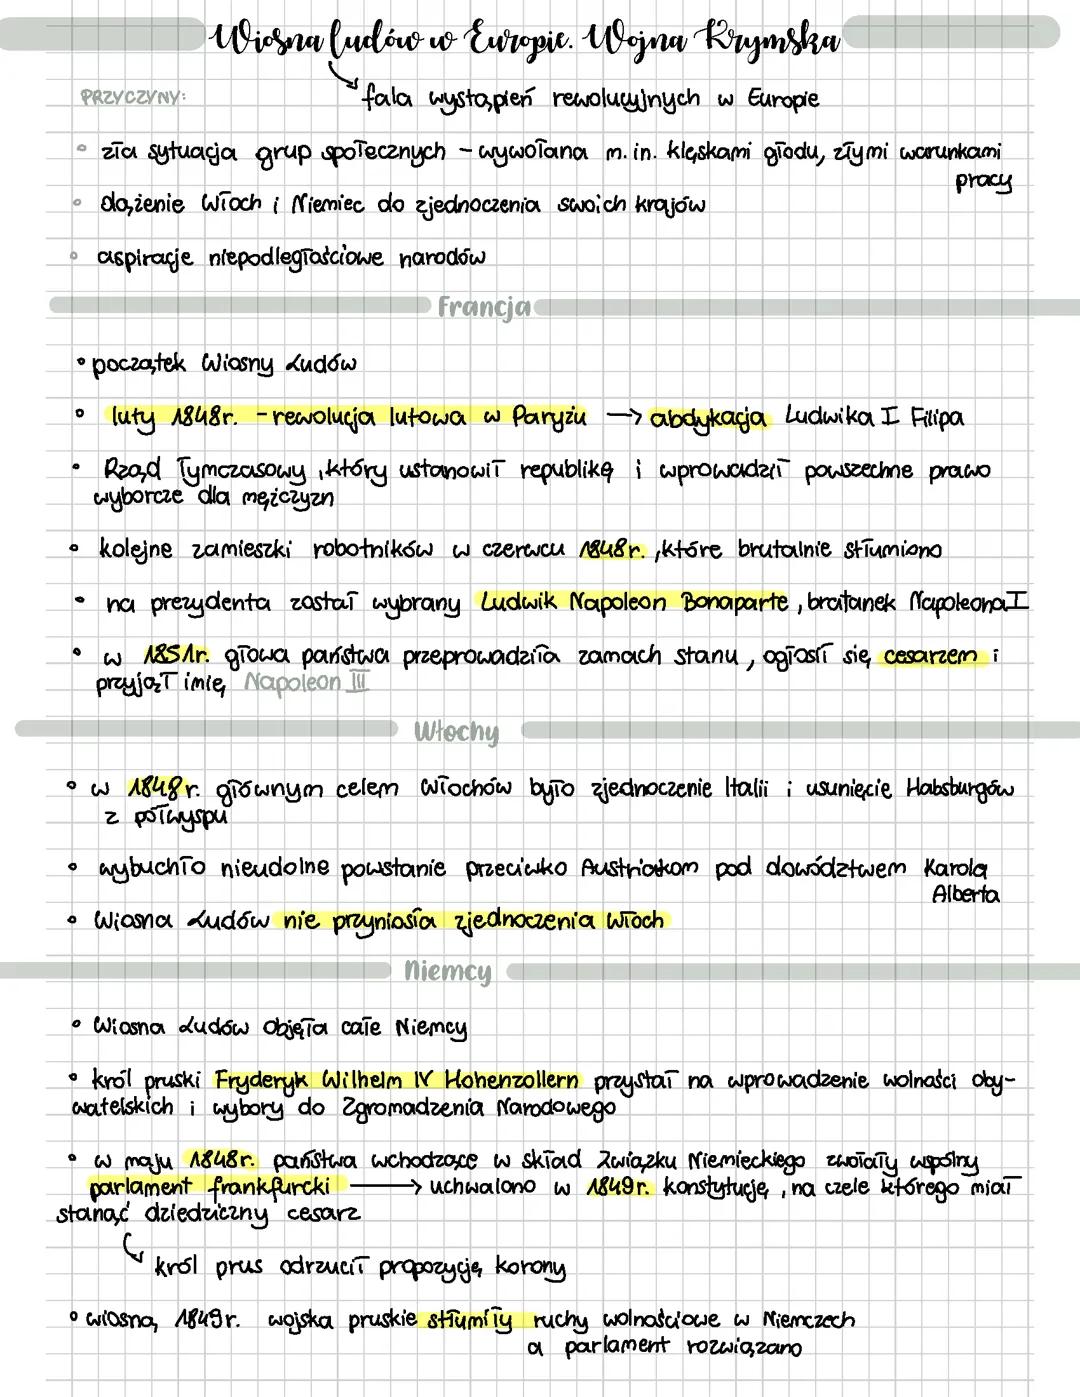 Wiosna ludów w Europie. Wojna Krymska
PRZYCZYNY:
fala wystąpień rewolucyjnych w Europie
• zła sytuacja grup społecznych - wywołana m. in. klęskami głodu, złymi warunkami
pracy
• dążenie Włoch i Niemiec do zjednoczenia swoich krajów
• aspiracje niepodległościowe narodów
Francja
• początek Wiosny Ludów
• luty 1848r. - rewolucja lutowa w Paryżu → abdykacja Ludwika I Filipa
• Rząd Tymczasowy, który ustanowił republikę i wprowadził powszechne prawo
wyborcze dla mężczyzn
• kolejne zamieszki robotników w czerwcu 1848r., które brutalnie stłumiono
• na prezydenta został wybrany Ludwik Napoleon Bonaparte, bratanek Napoleona I
• w 1851r. głowa państwa przeprowadziła zamach stanu, ogłosił się cesarzem i
przyjął imię Napoleon III
Włochy
• w 1848r. głównym celem Włochów było zjednoczenie Italii i usunięcie Habsburgów
z półwyspu
• wybuchło nieudolne powstanie przeciwko Austriakom pod dowództwem Karola
Alberta
• Wiosna Ludów nie przyniosła zjednoczenia Włoch
Niemcy
• Wiosna Ludów objęła całe Niemcy
• król pruski Fryderyk Wilhelm IV Hohenzollern przystał na wprowadzenie wolności oby-
watelskich i wybory do Zgromadzenia Narodowego
• w maju 1848r. państwa wchodzące w skład Związku Niemieckiego zwołały wspólny
parlament frankfurcki → uchwalono w 1849r. konstytucję, na czele którego miał
stanąć dziedziczny cesarz
król prus odrzucił propozycję korony
• wiosną 1849r. wojska pruskie stłumiły ruchy wolnościowe w Niemczech
a parlament rozwiązano